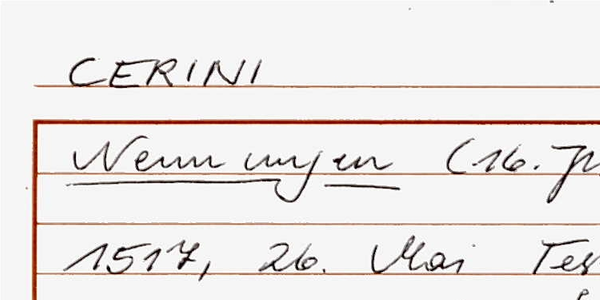 CERINI
Nennungen (16. J
1517, 26. Mai Tes